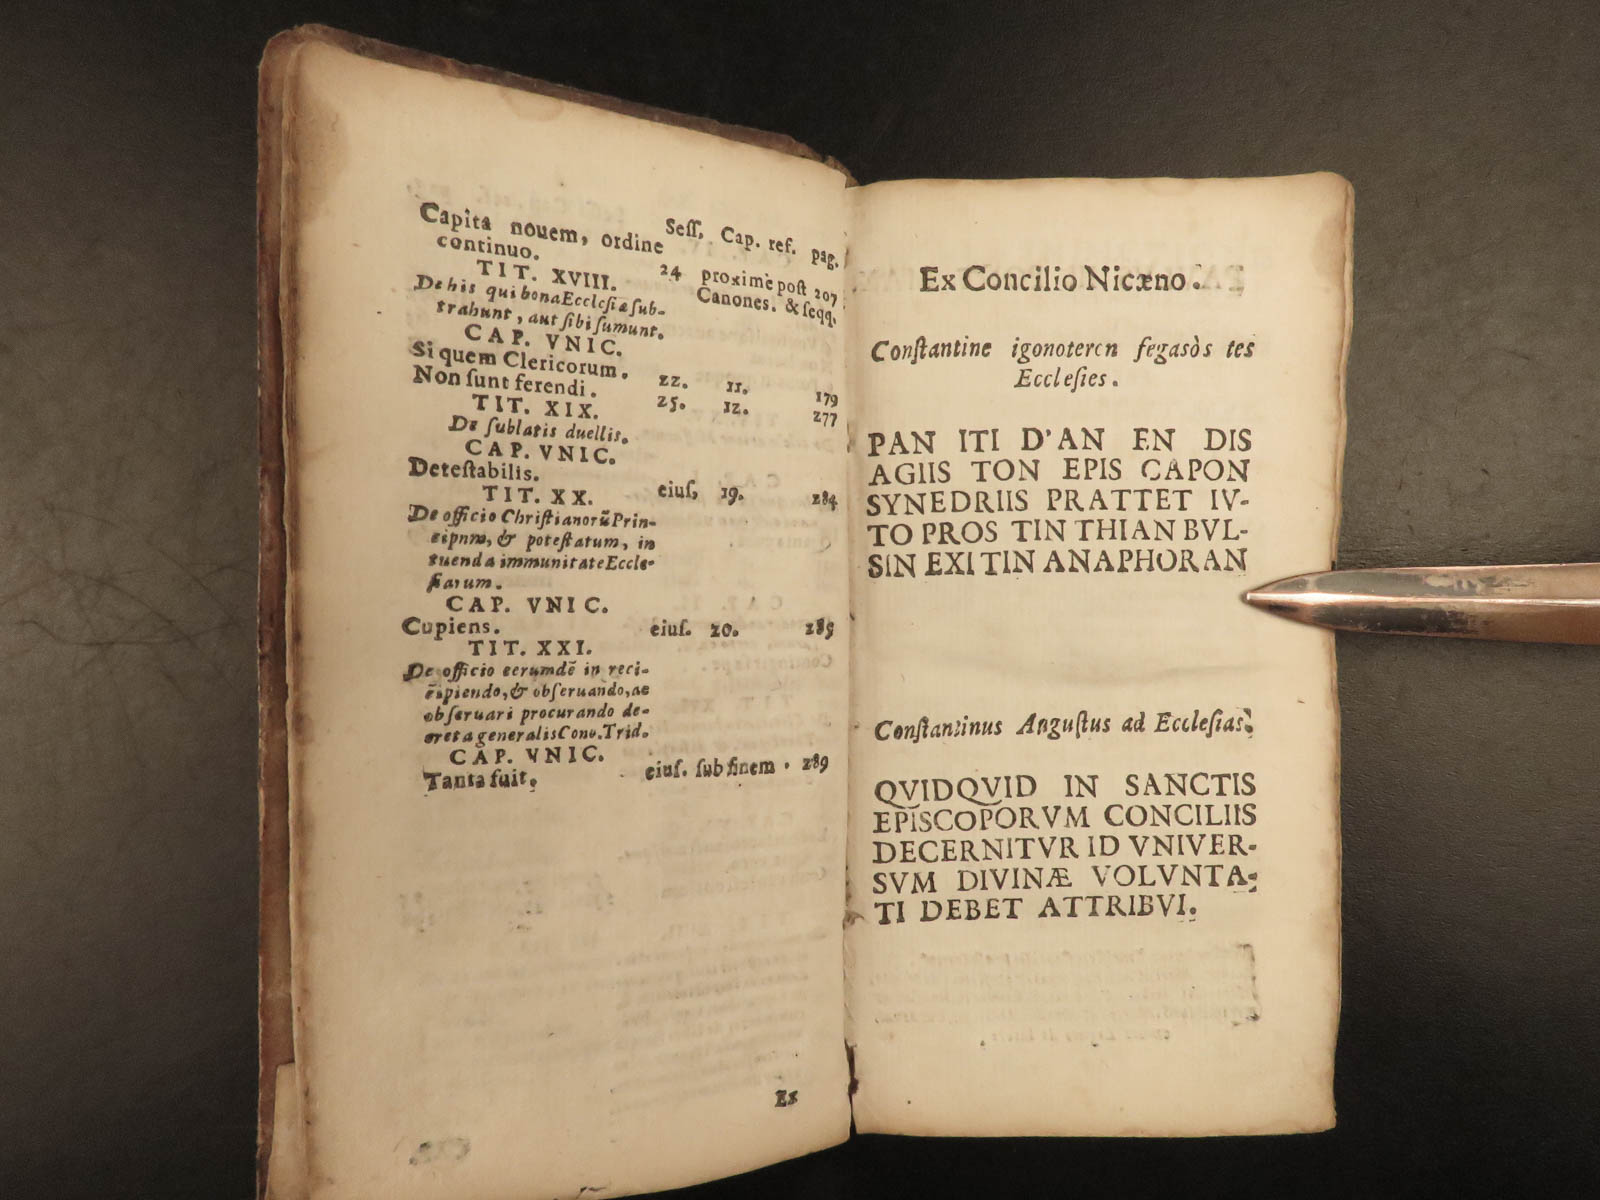 Seſſ. Cap. ref. pag.
Capita nouem, ordine
continuo.
24 proximè poſt 207
Canones. & ſeqq.
TIT. XVIII.
De his qui bona Eccleſiæ ſub-
trahunt, aut ſibi ſumunt.
CAP. VNIC.
Si quem Clericorum. 22. 11. 179
Non ſunt ferendi. 25. 12. 277
TIT. XIX.
De ſublatis duellis.
CAP. VNIC.
Deteſtabilis. eiuſ. 19. 284
TIT. XX.
De officio Chriſtianorũ Prin-
cipum, & poteſtatum, in
tuenda immunitate Eccle-
ſiarum.
CAP. VNIC.
Cupiens. eiuſ. 20. 285
TIT. XXI.
De officio eerumdẽ in reci-
piendo, & obſeruando, ac
obſeruari procurando de-
creta generalis Conc. Trid.
CAP. VNIC.
Tanta fuit. eiuſ. ſub finem. 289
Ex
Ex Concilio Nicæno.
Conſtantine igonoteren fegasòs tes
Eccleſies.
PAN ITI D'AN EN DIS
AGIIS TON EPIS CAPON
SYNEDRIIS PRATTET IV-
TO PROS TIN THIAN BVL-
SIN EXI TIN ANAPHORAN
Conſtantinus Anguſtus ad Eccleſias.
QVIDQVID IN SANCTIS
EPISCOPORVM CONCILIIS
DECERNITVR ID VNIVER-
SVM DIVINÆ VOLVNTA-
TI DEBET ATTRIBVI.